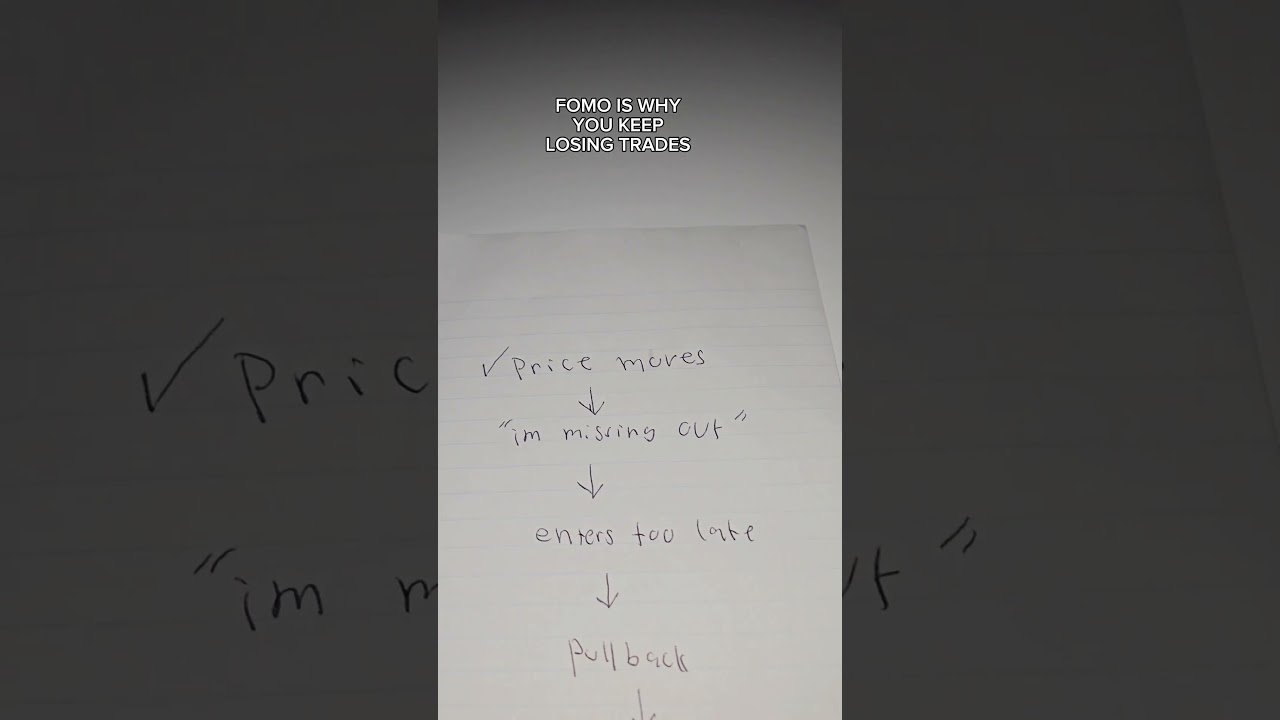 FOMO IS WHY
YOU KEEP
LOSING TRADES
✓ Price moves
↓
"im missing out"
↓
enters too late
↓
pullback
↓